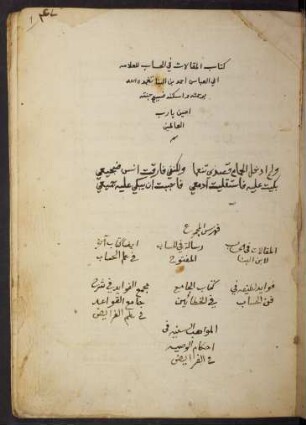 كتاب المقالات في الحساب للعلامة
ابي العباس احمد بن البنا تغمده الله
برحمته واسكنه فسيح جنته
امين يا رب
العالمين
ولم ادخل الحمام قصدي تنعما ولكنني فارقت انس ضجيعي
بكيت عليه فاستقليت ادمعي فاحببت ان يبكي عليه جميعي
فهرس المجموع
المقالات في الحساب لابن البنا
رسالة في الحساب المفتوح
ايضا كتاب آخر في علم الحساب
فوايد ملخصة في فن الحساب
كتاب الجامع في الخطائين
مجمع الفوايد في شرح جامع القواعد في علم الفرايض
المواهب السنيه في
احكام الوصيه
في الفرايض